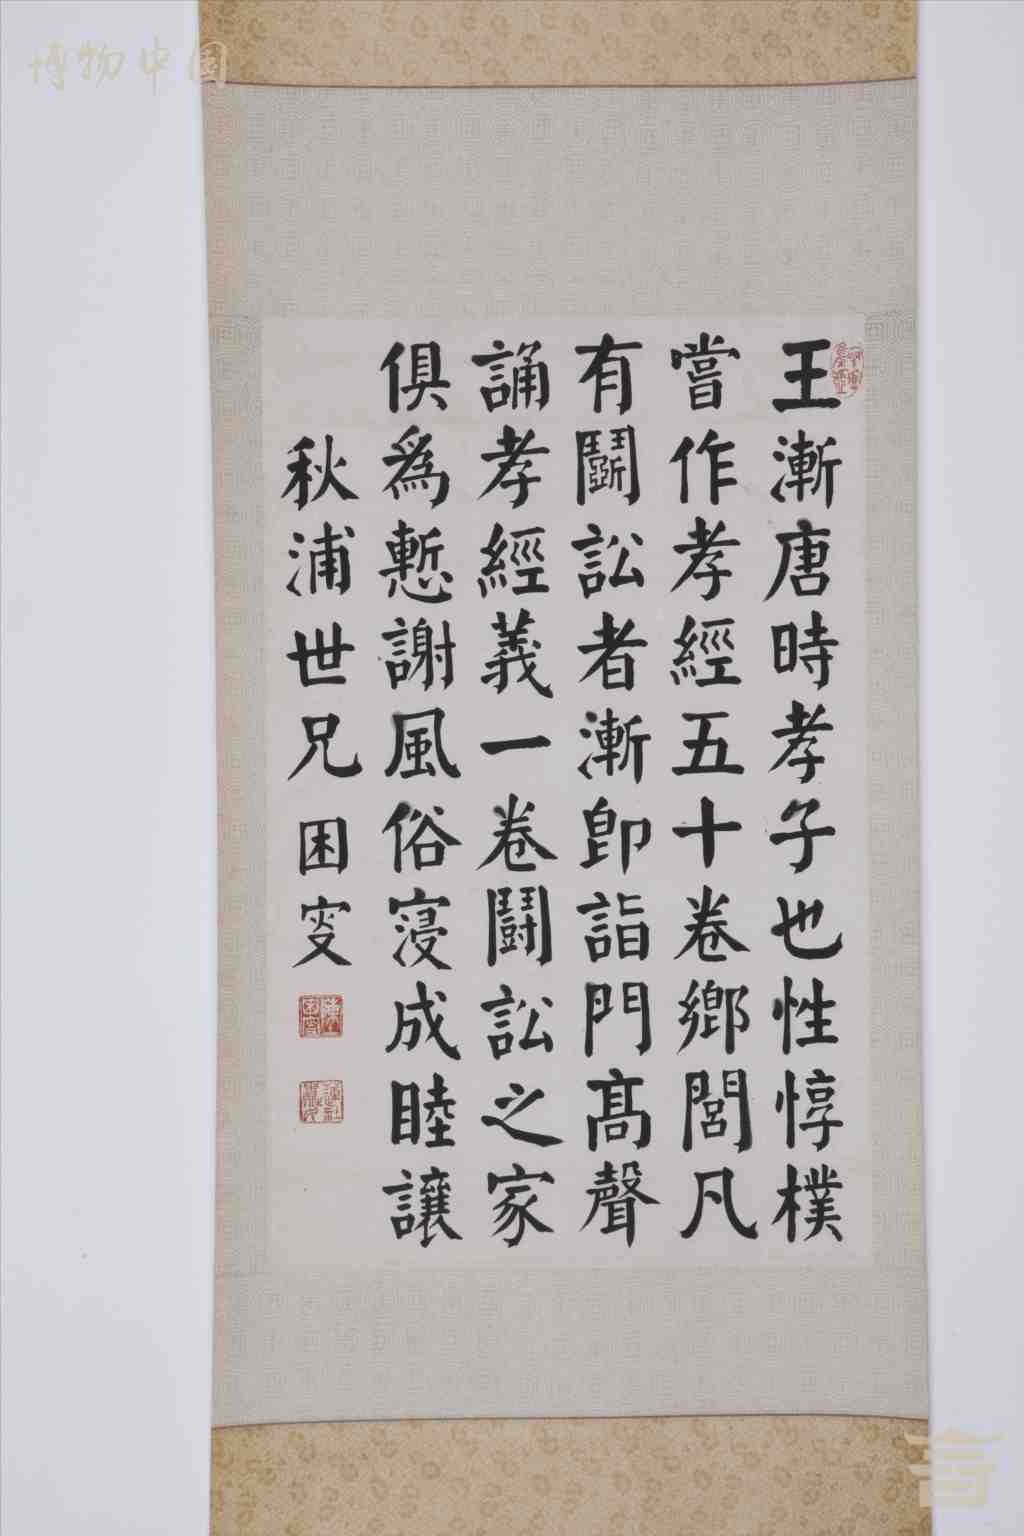 博物中国
王漸唐時孝子也性惇樸
嘗作孝經五十卷鄉閭凡
有鬭訟者漸即詣門高聲
誦孝經義一卷鬭訟之家
俱為慙謝風俗寖成睦讓
秋浦世兄 困叟